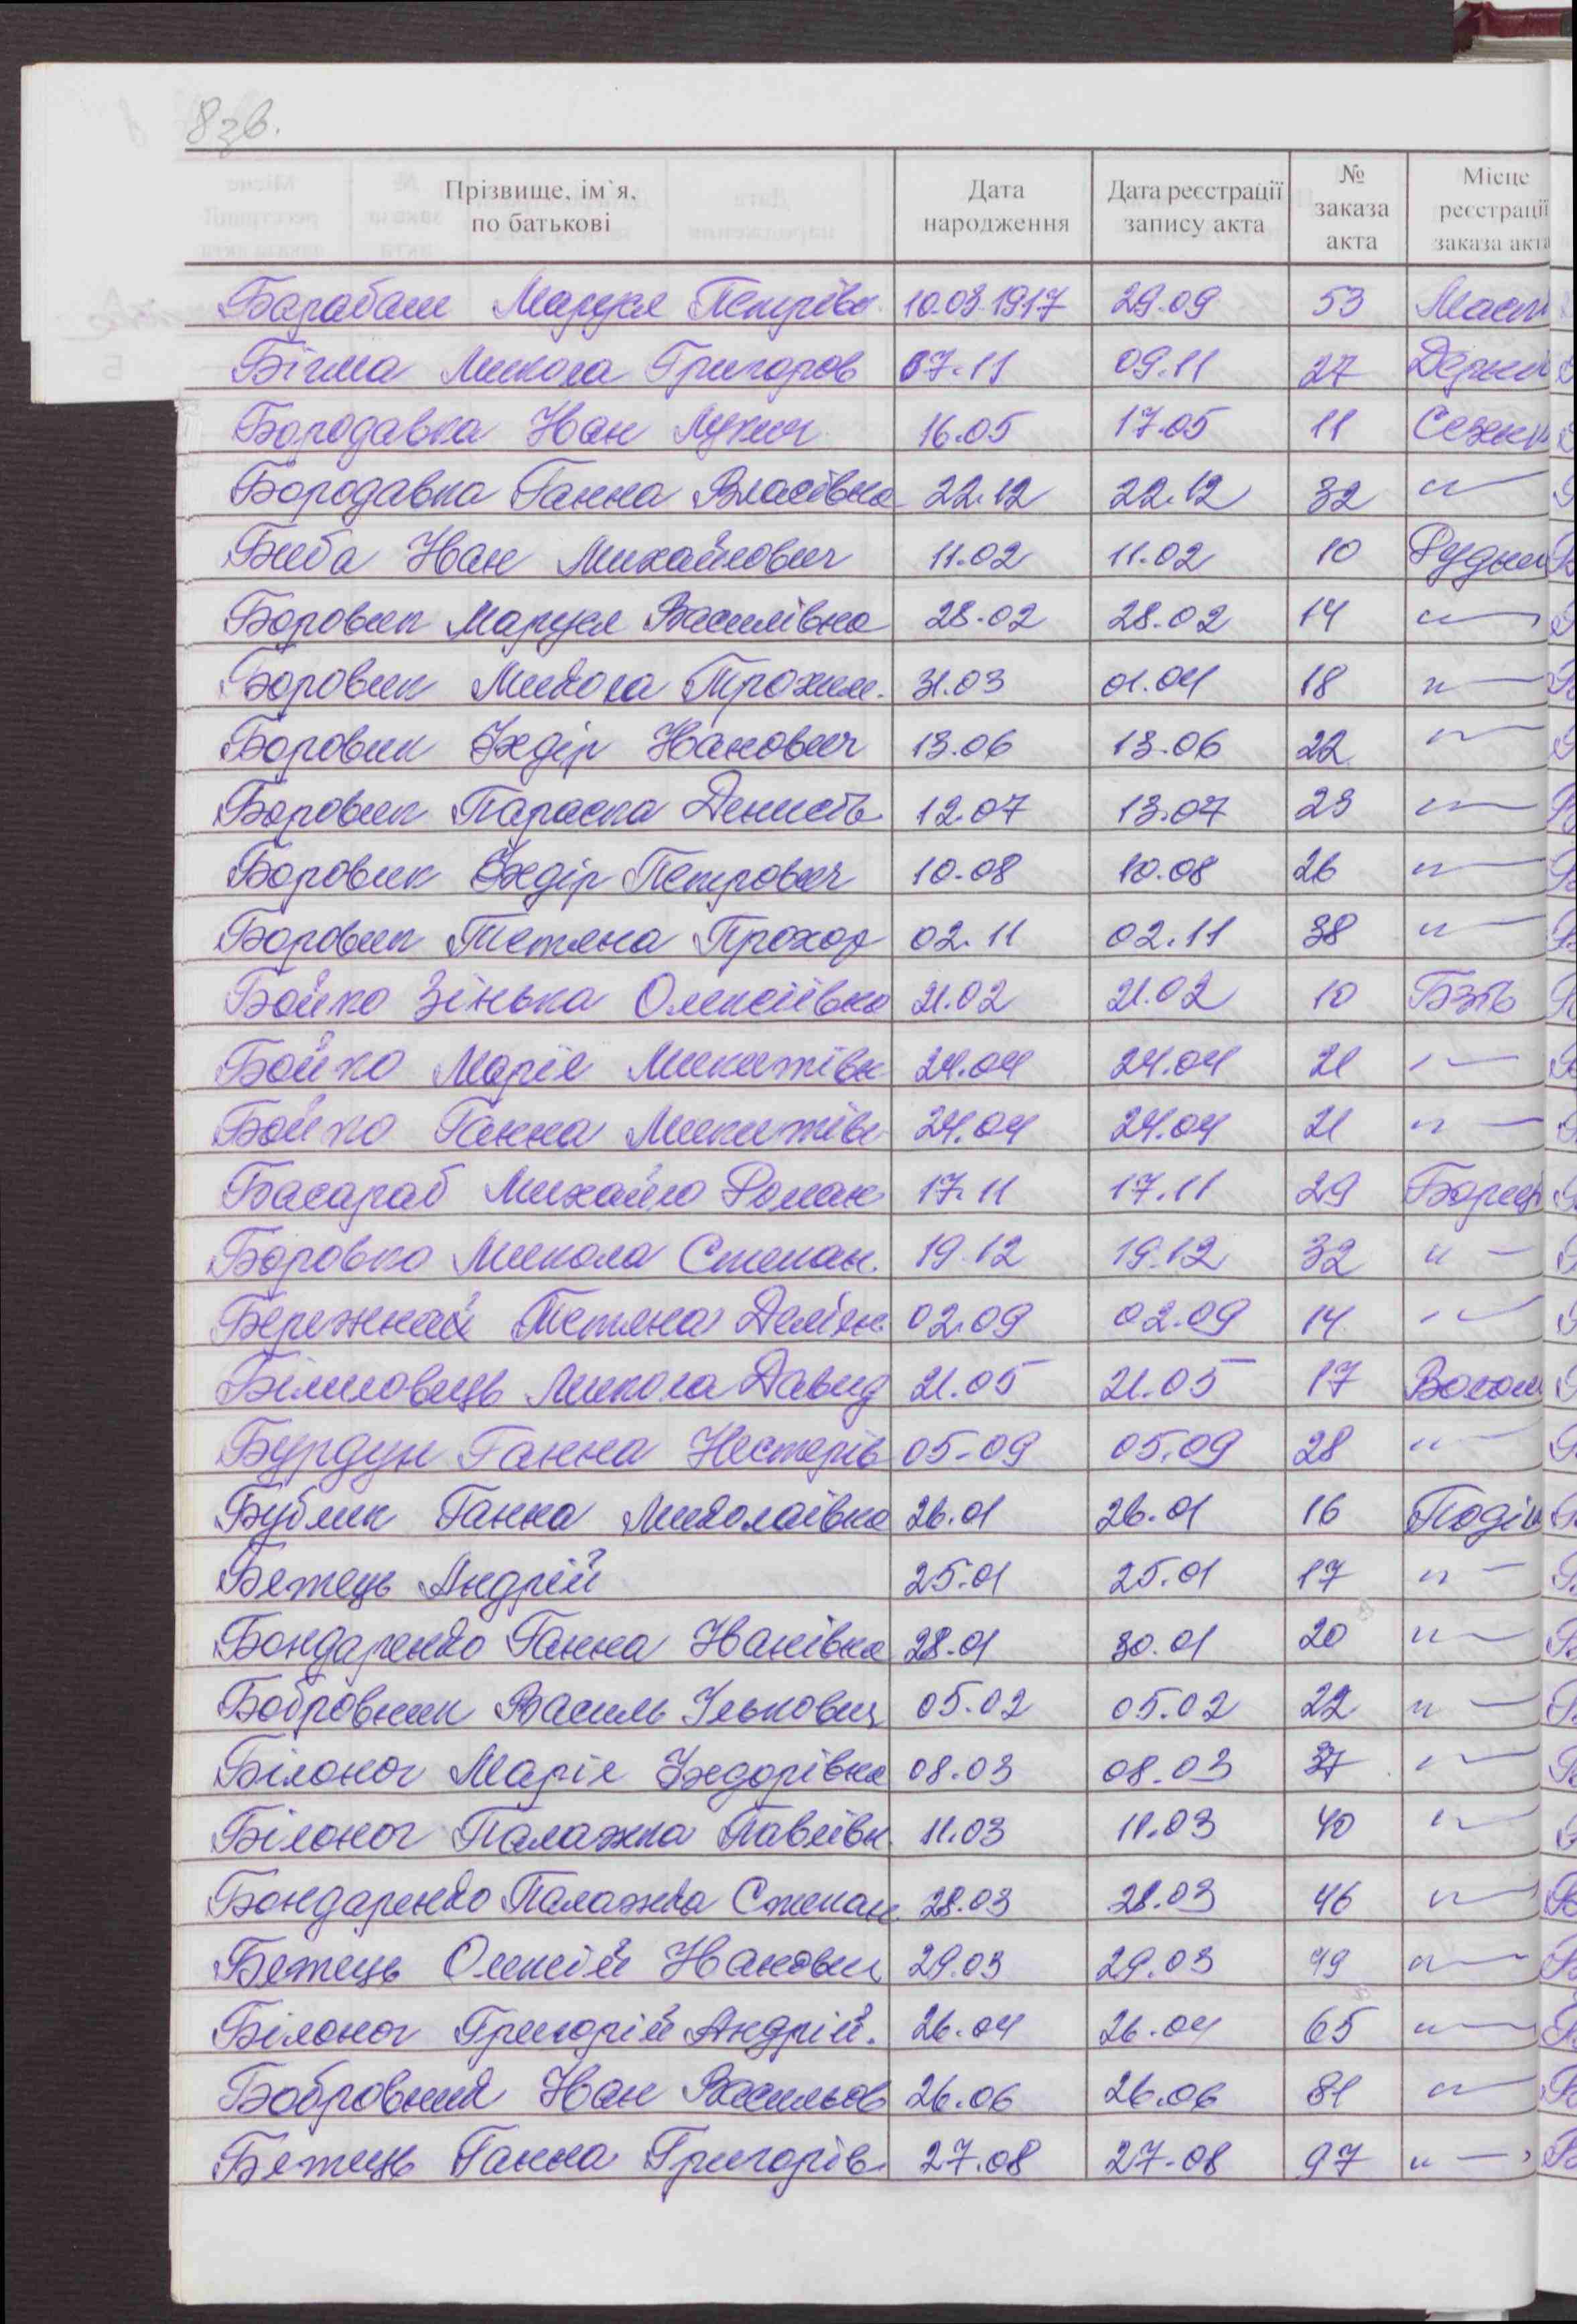 8зв.
Прізвище, ім`я, по батькові Дата народження Дата реєстрації запису акта № заказа акта Місце реєстрації заказа акта
Барабаш Маруся Петрівн 10.03.1917 29.09 53
Бігма Микола Григоров 07.11 09.11 27
Бородавка Іван Лукич 16.05 17.05 11
Бородавка Ганна Власівна 22.12 22.12 32 "—
Биба Іван Михайлович 11.02 11.02 10 Рудни
Боровик Маруся Василівна 28.02 28.02 14 "—
Боровик Микола Трохим. 31.03 01.04 18 "—
Боровик Хведір Іванович 13.06 13.06 22 "—
Боровик Параска Денисів 12.07 13.07 23 "—
Боровик Хведір Петрович 10.08 10.08 26 "—
Боровик Тетяна Прохор 02.11 02.11 38 "—
Бойко Зінька Олексіївна 21.02 21.02 10
Бойко Марія Микитівн 24.04 24.04 21 "—
Бойко Ганна Микитівн 24.04 24.04 21 "—
Басараб Михайло Роман 17.11 17.11 29
Боровко Микола Степан. 19.12 19.12 32 "—
Бережная Тетяна Дем'ян. 02.09 02.09 14 "—
Білиловець Микола Давид 21.05 21.05 17
Бурдун Ганна Нестерів 05.09 05.09 28 "—
Бублик Ганна Миколаївна 26.01 26.01 16
Бетець Андрій 25.01 25.01 17 "—
Бондаренко Ганна Іванівна 28.01 30.01 20 "—
Бобровник Василь Ількович 05.02 05.02 22 "—
Білоног Марія Хведорівна 08.03 08.03 37 "—
Білоног Палажка Павлівн 11.03 11.03 40 "—
Бондаренко Палажка Степан. 28.03 28.03 46 "—
Бетець Олексій Іванович 29.03 29.03 49 "—
Білоног Григорій Андрій. 26.04 26.04 65 "—
Бобровник Іван Васильов 26.06 26.06 81 "—
Бетець Ганна Григорів. 27.08 27.08 97 "—